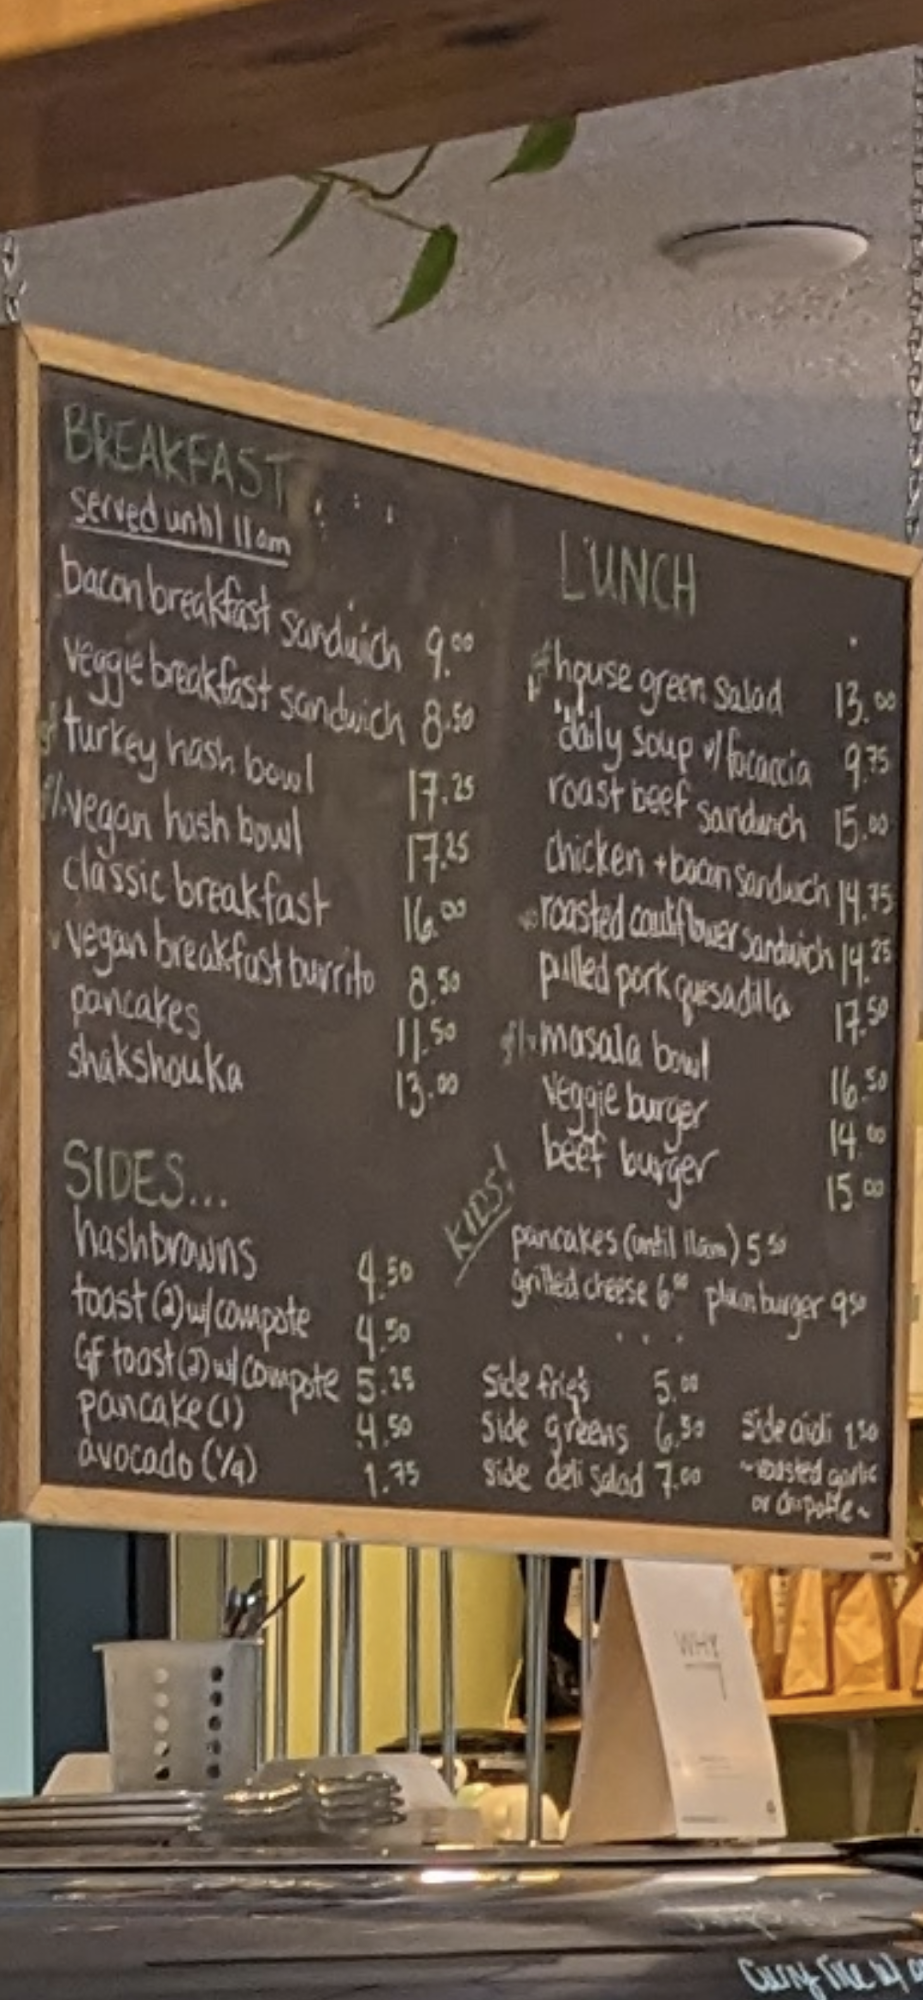 BREAKFAST...
served until 11am
bacon breakfast sandwich 9.00
veggie breakfast sandwich 8.50
gf turkey hash bowl 17.25
gf/v vegan hash bowl 17.25
classic breakfast 16.00
v vegan breakfast burrito 8.50
pancakes 11.50
shakshouka 13.00
SIDES...
hashbrowns 4.50
toast (2) w/ compote 4.50
GF toast (2) w/ compote 5.25
pancake (1) 4.50
avocado (1/4) 1.75
LUNCH
house green salad 13.00
daily soup w/ focaccia 9.75
roast beef sandwich 15.00
chicken + bacon sandwich 14.75
roasted cauliflower sandwich 14.25
pulled pork quesadilla 17.50
gf/v masala bowl 16.50
veggie burger 14.00
beef burger 15.00
KIDS!
pancakes (until 11am) 5.50
grilled cheese 6.00 plain burger 9.50
...
side fries 5.00
side greens 6.50
side deli salad 7.00
side aioli 1.50
~roasted garlic
or chipotle~
WHY